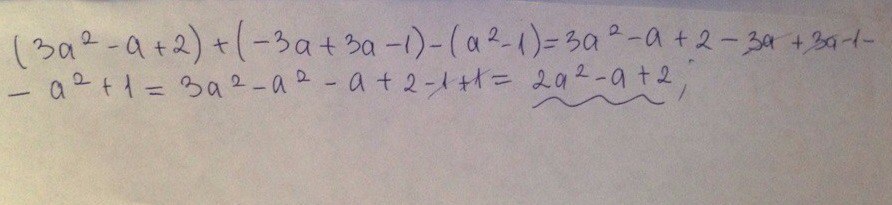 (3a² - a + 2) + (-3a + 3a - 1) - (a² - 1) = 3a² - a + 2 - 3a + 3a - 1 -
- a² + 1 = 3a² - a² - a + 2 - 1 + 1 = 2a² - a + 2;